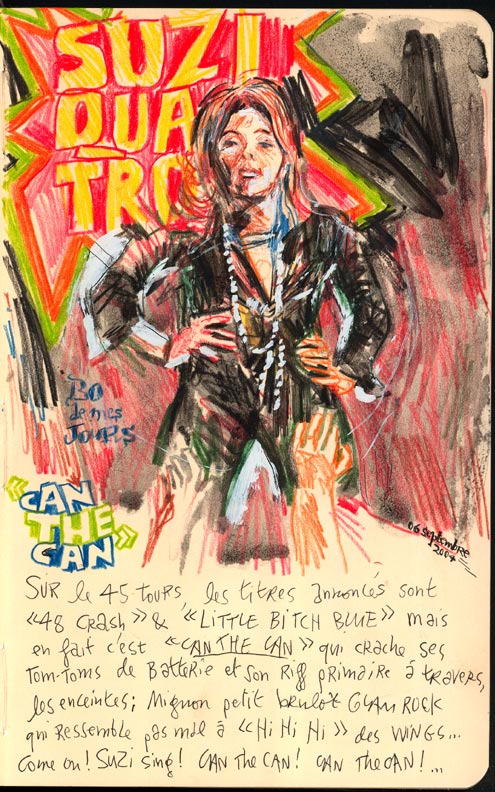 SUZI
QUA
TRO
BO
de mes
Jours
«CAN
THE»
CAN
06 septembre
2007
SUR le 45-tours, les titres annoncés sont
«48 Crash» & «LITTLE BITCH BLUE» mais
en fait c'est «CAN THE CAN» qui crache ses
Tom-Toms de Batterie et son Riff primaire à travers,
les enceintes; Mignon petit brulot GLAM ROCK
qui ressemble pas mal à «Hi Hi Hi» des WINGS...
Come on! Suzi sing! CAN the CAN! CAN the CAN!...